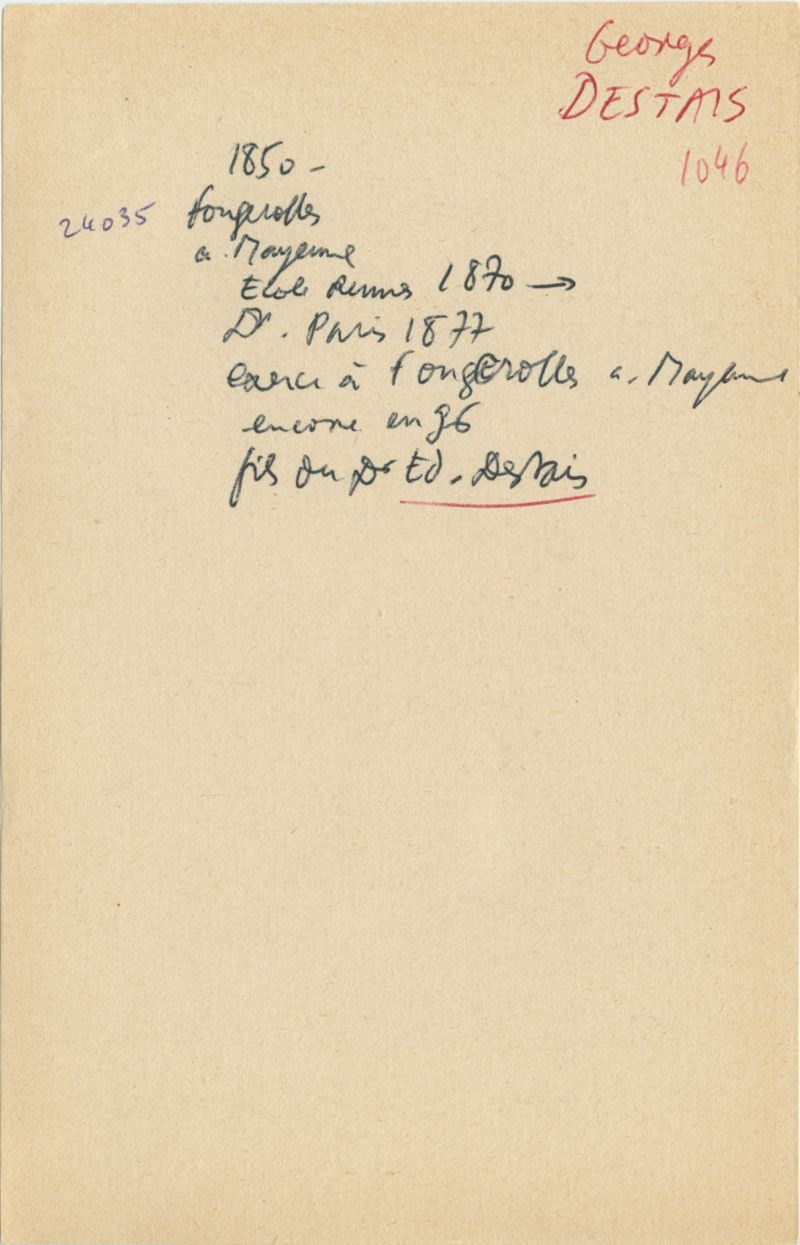 Georges
DESTAIS
1046
1850 -
24035 Fougerolles
a. Mayenne
Ecole Rennes 1870 →
Dr. Paris 1877
exerce à Fougerolles a. Mayenne
encore en 96
fils du Dr Ed. Destais